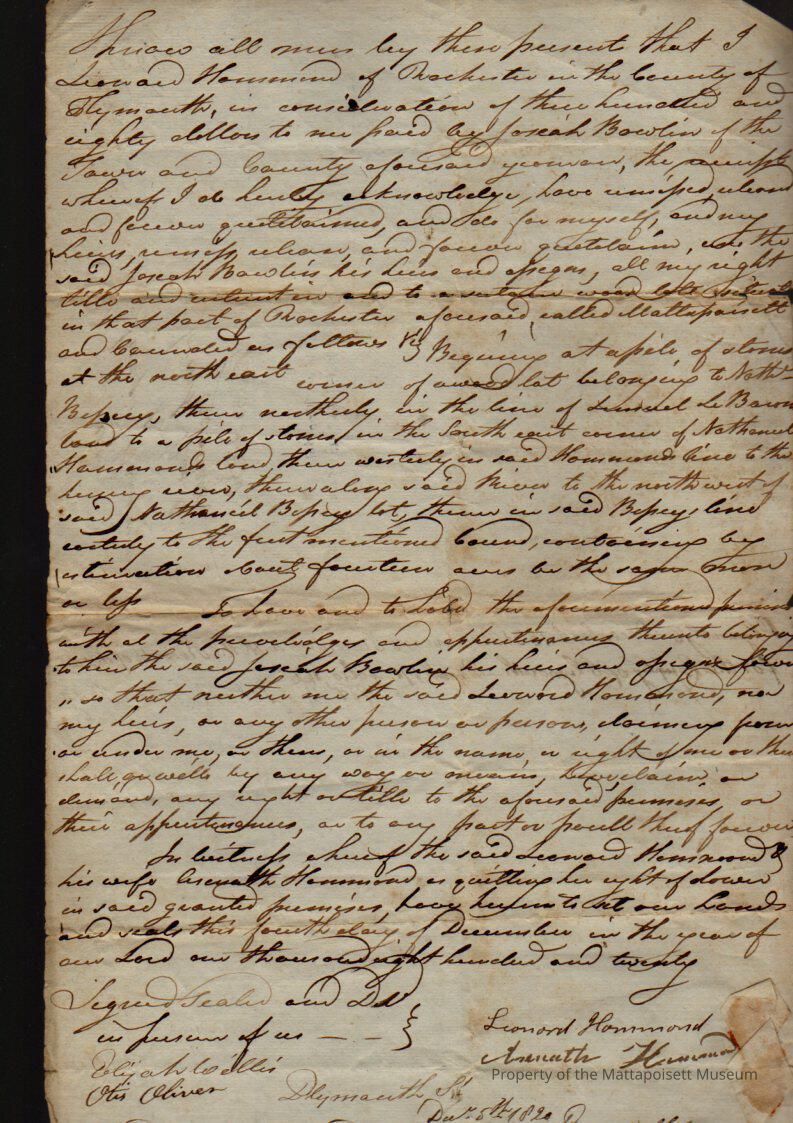 Know all men by these present that I
Leonard Hammond of Rochester in the County of
Plymouth, in consideration of three hundred and
eighty dollars to me paid by Josiah Bowlin of the
Town and County aforesaid yeoman, the receipt
whereof I do hereby acknowledge, have remissed, releasd
and forever quitclaimed, and do for myself, and my
heirs, remiss, release, and forever quitclaim, unto the
said Josiah Bowlin his heirs and assigns, all my right
title and interest in and to a certain wood lott situate
in that part of Rochester aforesaid, called Mattapoisett
and bounded as follows viz Begining at a pile of stones
at the north east corner of a wood lot belonging to Nathl
Bessey, thence northerly in the line of Lemuel LeBaron
land to a pile of stones in the South east corner of Nathaniel
Hammonds land thence westerly in said Hammonds line to the
hering river, thence along said River to the northwest of
said Nathaniel Bessey lot, thence in said Besseys line
easterly to the first mentioned bound, containing by
estimation about fourteen acres be the same more
or less To have and to hold the aforementioned premises
with al the priveledges and appurtenances thereunto belonging
to him the said Josiah Bowlin his heirs and assigns forever
so that neither me the said Leonard Hammond, nor
my heirs, or any other person or persons, claiming from
or under me, or them, or in the name, or right of me or them
shall or will by any way or means, have, claim or
demand, any right or title to the aforesaid premises, or
their appurtenances, or to any part or parcell thereof forever
In witness whereof the said Leonard Hammond &
his wife Asenath Hammond as quitting her right of dower
in said granted premises, have hereunto set our hands
and seals this fourth day of December in the year of
our Lord one thousand eight hundred and twenty
Signed Sealed and Dd
in presence of us
Elijah Willis
Otis Oliver
Leonard Hammond
Asenath Hammond
Plymouth Ss
Decr 5th 1820
Property of the Mattapoisett Museum